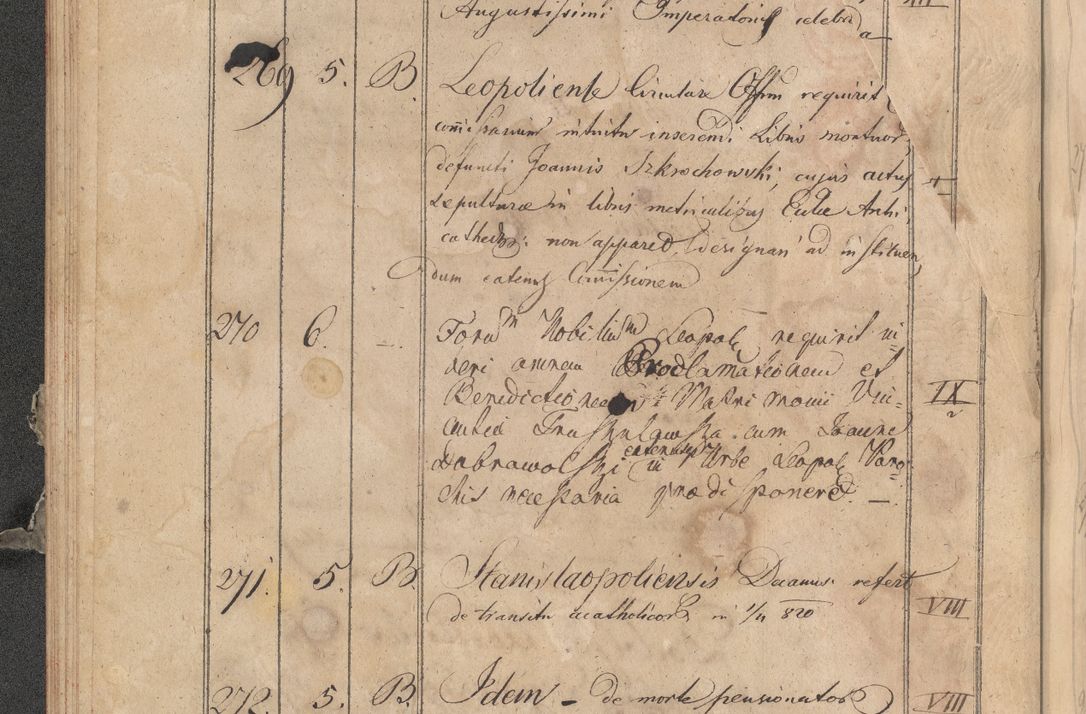 Augustissimi Imperatoris celebrda XII
269 5. B. Leopoliense Circulare Offm requirit
comissarium intuitu inserendi Libris mortuor
defuncti Joannis Szkrochowski, cujus actus X
sepulturæ in libris metriculibus Eccle Archi
cathedr: non appared, designari ad instituen
dum eatenus Commissionem
270 6. — Forum Nobilium Leopol requirit vi=
deri omnem Proclamationem et
Benedictionem Matrimonii Vin= IX
centia Truszkulawska cum Joanne
Dobrawolski eatenus in Urbe Leopol Paro=
chis necessaria prædisponered. —
271. 5. B. Stanislaopoliensis Decanus refert
de transitu acatholicor in 1/4 820 VIII
272. 5. B. Idem — de morte pensionator VIII